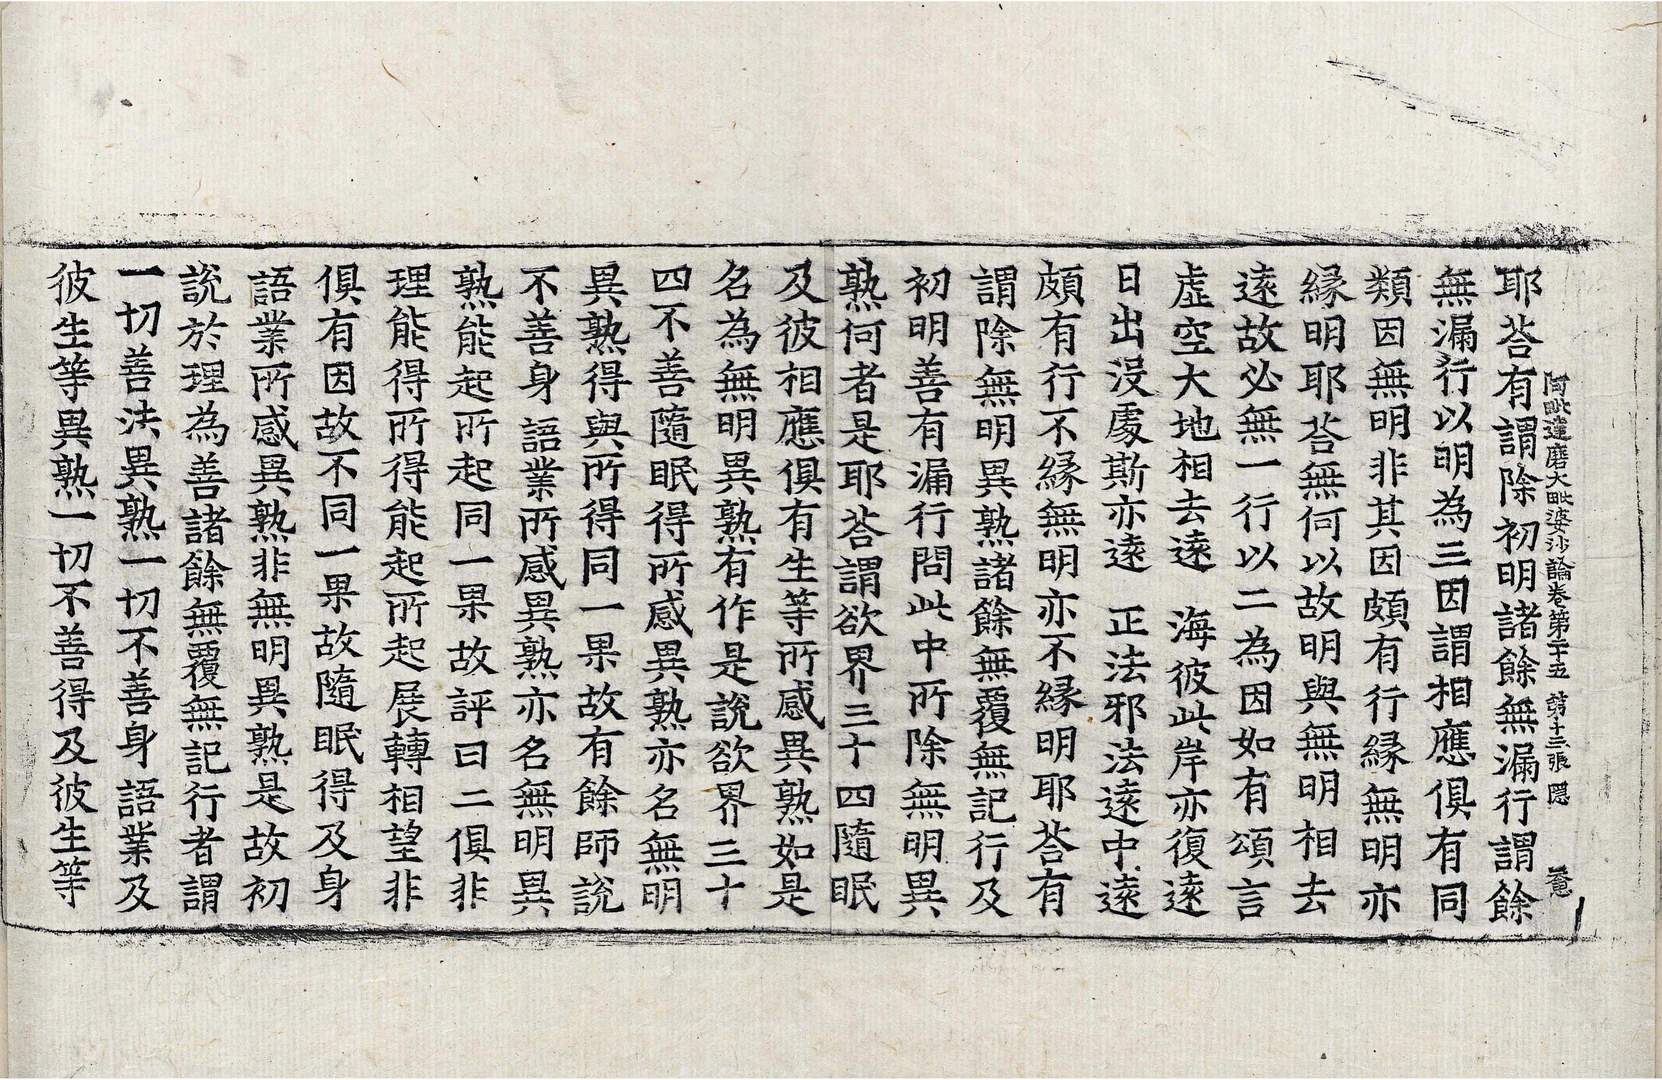 耶荅有謂除初明諸餘無漏行謂餘
阿毗達磨大毗婆沙論卷第二十五 第十三張 隱
無漏行以明為三因謂相應俱有同
類因無明非其因頗有行緣無明亦
緣明耶荅無何以故明與無明相去
遠故必無一行以二為因如有頌言
虛空大地相去遠 海彼此岸亦復遠
日出沒處斯亦遠 正法邪法遠中遠
頗有行不緣無明亦不緣明耶荅有
謂除無明異熟諸餘無覆無記行及
初明善有漏行問此中所除無明異
熟何者是耶荅謂欲界三十四隨眠
及彼相應俱有生等所感異熟如是
名為無明異熟有作是說欲界三十
四不善隨眠得所感異熟亦名無明
異熟得與所得同一果故有餘師說
不善身語業所感異熟亦名無明異
熟能起所起同一果故評曰二俱非
理能得所得能起所起展轉相望非
俱有因故不同一果故隨眠得及身
語業所感異熟非無明異熟是故初
說於理為善諸餘無覆無記行者謂
一切善法異熟一切不善身語業及
彼生等異熟一切不善得及彼生等